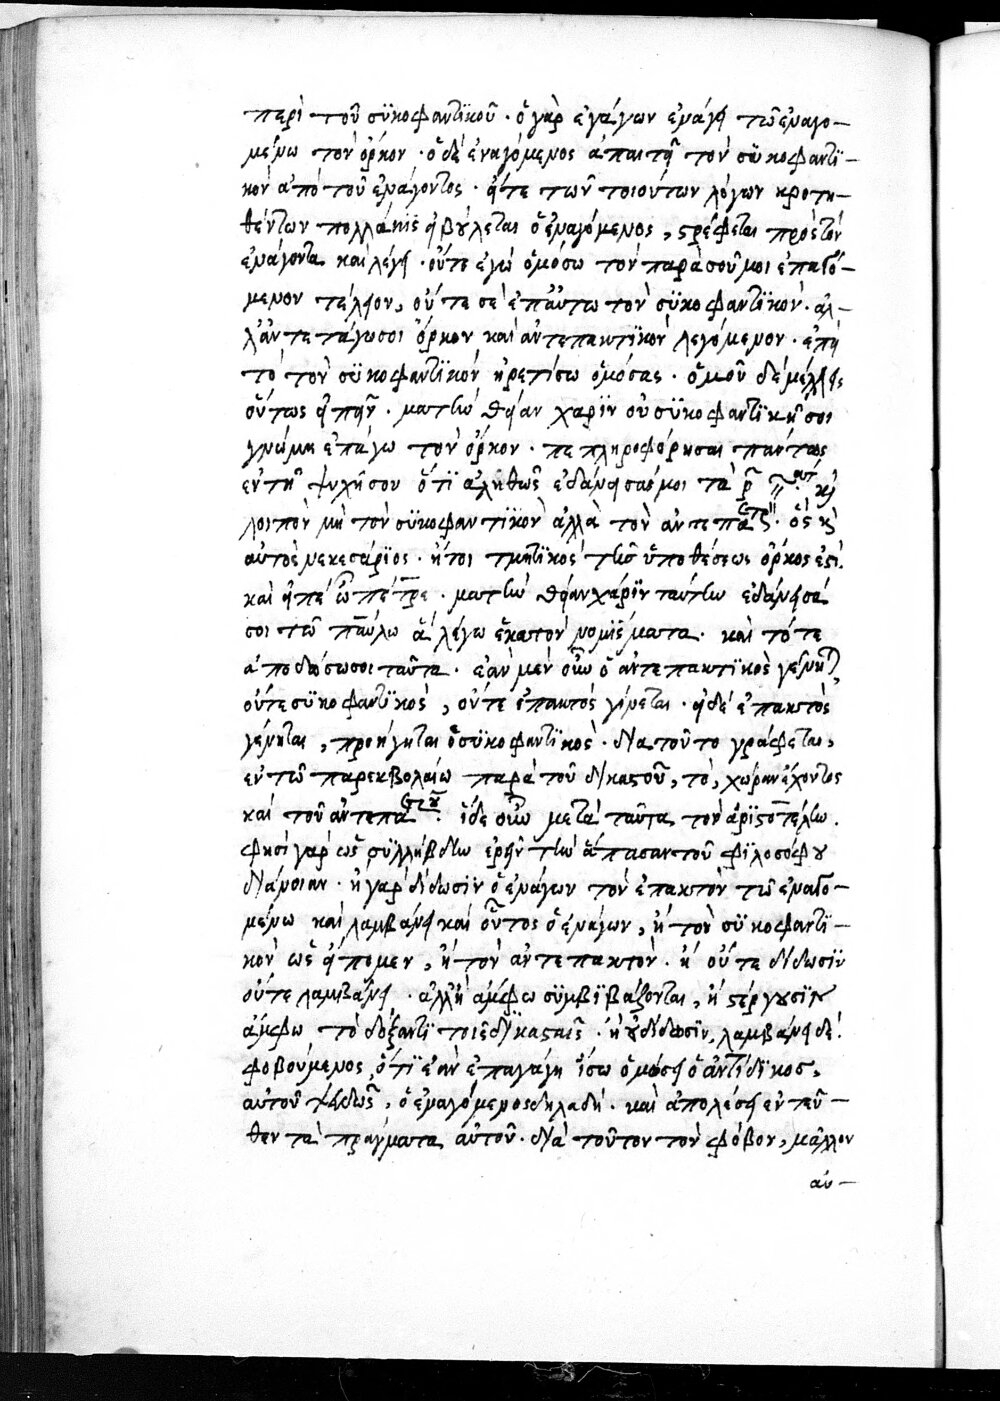 περὶ τοῦ συκοφαντικοῦ · ὁ γὰρ ἐνάγων ἐπάγει τῷ ἐναγο-
μένω τὸν ὅρκον · ὁ δὲ ἐναγόμενος ἀπαιτεῖ τὸν συκοφαντι-
κὸν ἀπὸ τοῦ ἐνάγοντος · εἶτε τῶν τοιούτων λόγων κροτη-
θέντων πολλάκις εἰ βούλεται ὁ ἐναγόμενος, στρέφεται πρὸς τὸν
ἐνάγοντα καὶ λέγει · οὔτε ἐγὼ ὀμόσω τὸν παρὰ σοῦ μοι ἐπαγό-
μενον τέλειον, οὔτε σὲ ἐπάγω τὸν συκοφαντικὸν · ἀλ-
λ' ἀντεπάγω σοι ὅρκον καὶ ἀντεπακτικὸν λεγόμενον · ἐπεὶ
τὸ τὸν συκοφαντικὸν ᾑρετίσω ὀμόσας · ὀμοῦν δὲ μέλλεις
οὕτως εἰπεῖν · μὰ τὴν θείαν χάριν οὐ συκοφαντικῆ σοι
γνώμη ἐπάγω τὸν ὅρκον · πεπληροφόρησαι πάντως
ἐν τῇ ψυχῇ σου ὅτι ἀληθῶς ἐδάνεισάς μοι τὰ ρ
λοιπὸν μὴ τὸν συκοφαντικὸν ἀλλὰ τὸν ἀντεπακτὸν · ὃς καὶ
αὐτὸς νεκεσάριος · ἤτοι τμητικὸς τῆς ὑποθέσεως ὅρκος ἐστὶ.
καὶ εἰπὲ ὦ πέτρε · μὰ τὴν θείαν χάριν ταύτην ἐδάνεισά
σοι τῷ παύλω ἃ λέγω ἑκατὸν νομίσματα · καὶ τότε
ἀποδώσω σοι ταῦτα · ἐὰν μὲν οὖν ὁ ἀντεπακτικὸς γένηται,
οὔτε συκοφαντικὸς, οὔτε ἐπακτὸς γίνεται · εἰ δὲ ἐπακτὸς
γένηται, προηγῆται ὁ συκοφαντικὸς · διὰ τοῦτο γράφεται,
ἐν τῷ παρεκβολαίω παρὰ τοῦ δικαστοῦ, τὸ, χώραν ἔχοντος
καὶ τοῦ ἀντεπακτοῦ · ἴδε οὖν μετὰ ταῦτα τὸν ἀριστοτέλην.
φησὶ γὰρ ὡς συλλήβδην ἐρεῖν τὴν ἅπασαν τοῦ φιλοσόφου
διάνοιαν · ἢ γὰρ δίδωσιν ὁ ἐνάγων τὸν ἐπακτὸν τῷ ἐναγο-
μένω καὶ λαμβάνει καὶ οὗτος ὁ ἐνάγων, ἢ τὸν συκοφαντι-
κὸν ὡς εἴπομεν, ἢ τὸν ἀντεπακτὸν · ἢ οὔτε δίδωσιν
οὔτε λαμβάνει · ἀλλ' ἢ ἄμφω συμβιβάζονται, ἢ στέργουσιν
ἄμφω τὸ δόξαν τι τοῖς δικασταῖς · ἢ οὐ δίδωσιν, λαμβάνει δὲ.
φοβούμενος, ὅτι ἐὰν ἐπαγάγη ἴσω ὀμόσει ὁ ἀντίδικος,
αὐτοῦ ψευδῶς, ὁ ἐναγόμενος δηλαδὴ · καὶ ἀπολέσει ἐντεῦ-
θεν τὰ πράγματα αὐτοῦ · διὰ τοῦτον τὸν φόβον, μᾶλλον
αὐ-